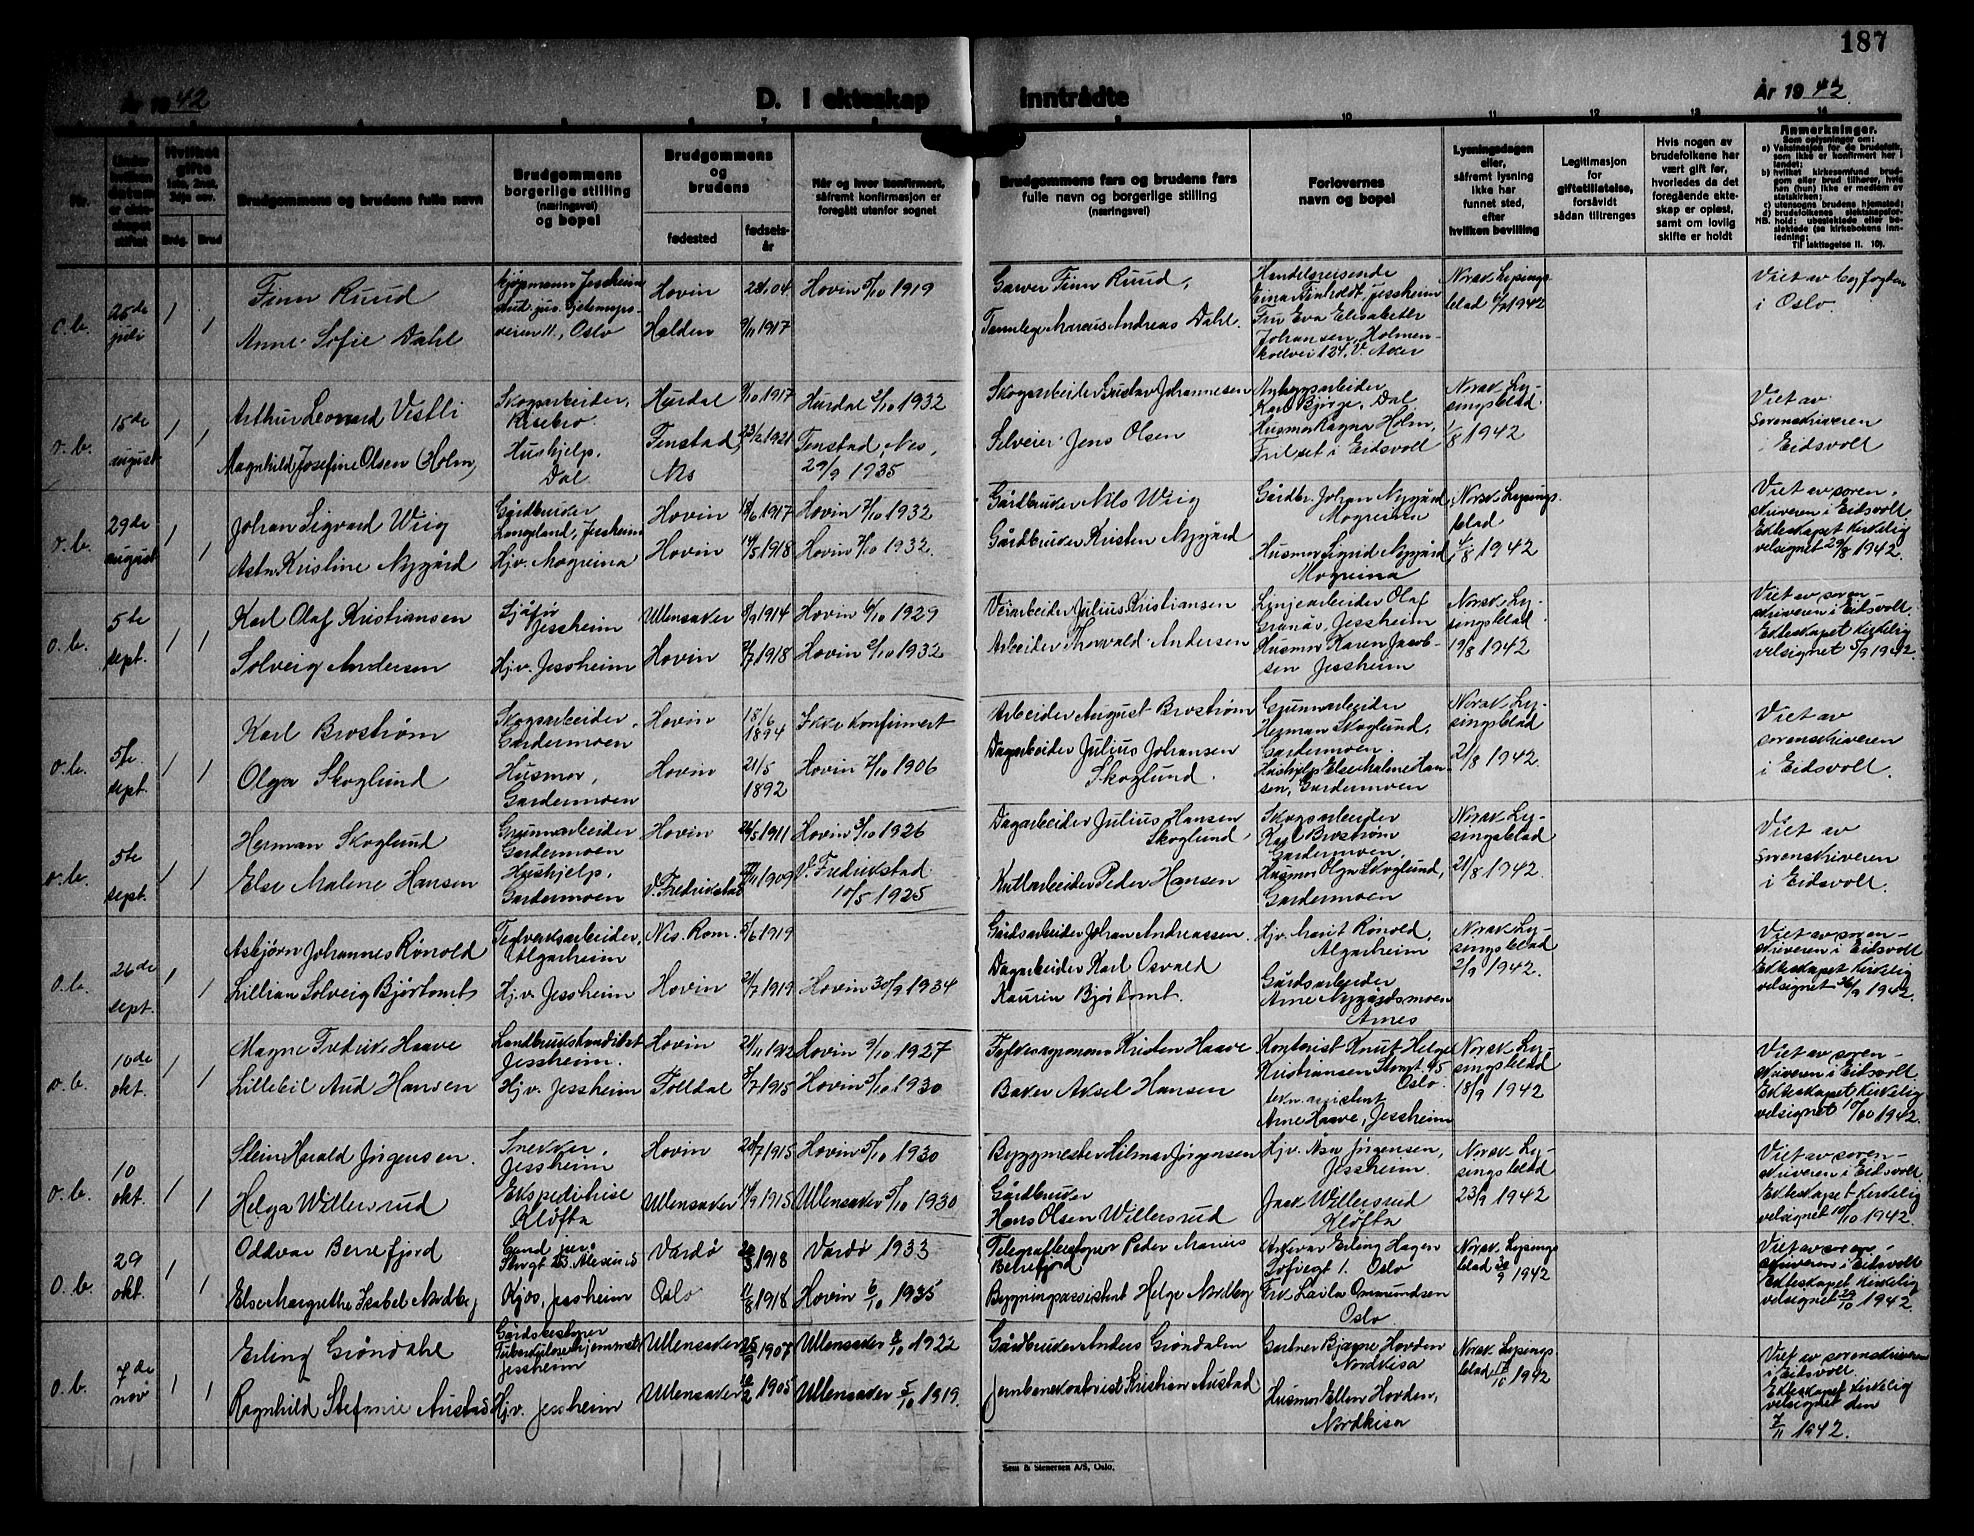 187
År 1942
D. I ekteskap inntrådte
År 1942
Nr.
Hvilket gifte
Brudg. Brud
Brudgommens og brudens fulle navn
Brudgommens borgerlige stilling (næringsvei) og bopel
Brudgommens og brudens
fødested
fødselsår
Når og hvor konfirmert, såfremt konfirmasjon er foregått utenfor sognet
Brudgommens fars og brudens fars fulle navn og borgerlige stilling (næringsvei)
Forlovernes navn og bopel
Lysningsdagen eller, såfremt lysning ikke har funnet sted, efter hvilken bevilling
Legitimasjon for giftetillatelse, forsåvidt sådan tiltrenges
Hvis nogen av brudefolkene har vært gift før, hvorledes da det foregående ekteskap er opløst, samt om lovlig skifte er holdt
Anmerkninger.
Som oplysninger om:
a) Vaksinasjon for de brudefolk, som ikke er konfirmert her i landet;
b) hvilket kirkesamfund brudgom eller brud tilhører, hvis han (hun) ikke er medlem av statskirken;
c) utensogns brudens hjemsted;
d) brudefolkenes slektskapsforhold: ubeslektede eller beslektede (se kirkebokens innledning;
Til iakttagelse II. 10).
o.b. 25de juli 1 1
Finn Ruud
Anne Sofie Dahl
Hovin
Halden 9/11 1917
Hovin 5/10 1919
Garver Finn Ruud,
Tannlege Marcus Andreas Dahl.
Handelsreisende
Jessheim
Fru Eva Elisabeth
Johansen, Holmen-
kollvei 124, V. Aker
Norsk Lysings
blad 1942
Viet av byfogden
i Oslo.
o.b. 15de august 1 1
Arthur Leonard Vestli
Magnhild Josefine Olsen Holm,
Skogsarbeider,
Risebro.
Hushjelp,
Dal
Hurdal 1917
Fenstad, Nes 23/2 1921
Hurdal 2/10 1932
Fenstad, Nes,
29/9 1935
Skogsarbeider Gustav Johannesen
Selveier Jens Olsen
Anleggsarbeider
Karl Bjørge, Dal
Husmor Ragna Holm,
Frilset i Eidsvoll
Norsk Ly-
singsblad.
1/8 1942
Viet av
sorenskriveren
i Eidsvoll
o.b. 29de august 1 1
Johan Sigvard Wiig
Astri Kristine Nygård
Gårdbruker
Langeland, Jessheim
Hj.v. Mogreina
Hovin 1917
Hovin 14/5 1918
Hovin 2/10 1932
Hovin 2/10 1932.
Gårdbruker Nils Wiig
Gårdbruker Kristen Nygård
Gårdbr. Johan Nygård
Mogreina
Husmor Sigrid Nygård
Mogreina
Norsk Lysings
blad
4/8 1942
Viet av soren-
skriveren i Eidsvoll
Ekteskapet kirkelig
velsignet 29/8 1942.
o.b. 5te sept. 1 1
Karl Olaf Kristiansen
Solveig Andersen
Sjåfør
Jessheim
Hj.v. Jessheim
Ullensaker 1914
Hovin 1918
Hovin 6/10 1929
Hovin 2/10 1932
Veiarbeider Julius Kristiansen
Arbeider Thorvald Andersen
Linjearbeider Olaf
Granås, Jessheim
Husmor Karen Jacob-
sen Jessheim
Norsk Ly-
singsblad.
19/8 1942
Viet av soren-
skriveren i Eidsvoll.
Ekteskapet kirkelig
velsignet 5/9 1942.
o.b. 5te sept. 1 1
Karl Broström
Olga Skoglund
Skogsarbeider,
Gardermoen
Husmor,
Gardermoen
Hovin 18/6 1894
Hovin 21/5 1892
Ikke konfirmert
Hovin 7/10 1906
Arbeider August Broström
Dagarbeider Julius Johansen
Skoglund.
Grunnarbeider
Herman Skoglund,
Gardermoen.
Hushjelp Else Malene Han-
sen, Gardermoen
Norsk Ly-
singsblad
21/8 1942.
Viet av
sorenskriveren
i Eidsvoll.
o.b. 5te sept. 1 1
Herman Skoglund
Else Malene Hansen
Grunnarbeider
Gardermoen
Hushjelp,
Gardermoen
Hovin 1911
V. Fredrikstad 1909
Hovin 3/10 1926
V. Fredrikstad
10/5 1925
Dagarbeider Julius Hansen
Skoglund
Peder Hansen
Skogsarbeider
Karl Broström
Gardermoen,
Husmor Olga Skoglund,
Gardermoen
Norsk Ly-
singsblad
21/8 1942.
Viet av
Sorenskriveren
i Eidsvoll.
o.b. 26de sept. 1 1
Asbjørn Johannes Rönold
Lillian Solveig Bjørtomt
Teglverksarbeider,
Algarheim
Hj.v. Jessheim
Nes. Rom. 5/6 1919
Hovin 1919
Hovin 30/9 1934
Gårdsarbeider Johan Andreassen.
Dagarbeider Karl Osvald
Kaurin Bjørtomt.
Hj.v. Marit Rönold,
Algarheim
Gårdsarbeider
Arne Nygårdsmoen
Årnes
Norsk Ly-
singsblad
2/9 1942.
Viet av soren-
skriveren i Eidsvoll
Ekteskapet kirkelig
velsignet 26/9 1942.
o.b. 10de okt. 1 1
Magne Fredrik Haave
Lillebil Aud Hansen
Landbrukskandidat
Jessheim.
Hj.v. Jessheim
Hovin 1912
Folldal 1915
Hovin 9/10 1927
Hovin 5/10 1930
Fylkesagronom Kristen Haave
Baker Aksel Hansen
Kontorist Knut Helge
Kristiansen
Oslo.
tekn. assistent
Arne Haave, Jessheim
Norsk Ly-
singsblad
18/9 1942
Viet av soren-
skriveren i Eidsvoll.
Ekteskapet kirkelig
velsignet 10/10 1942.
o.b. 10 okt. 1 1
Stein Harald Jörgensen.
Helga Willersrud
Snekker,
Jessheim
Ekspeditrise
Kløfta
Hovin 1915
Ullensaker 1915
Hovin 5/10 1930
Ullensaker 5/10 1930
Byggmester Hilmar Jörgensen
Gårdbruker
Hans Olsen Willersrud
Hj.v. Åse Jörgensen,
Jessheim.
Willersrud
Kløfta
Norsk Ly-
singsblad
23/9 1942
Viet av soren-
skriveren i Eidsvoll
Ekteskapet kirkelig
velsignet 10/10 1942.
o.b. 29 okt. 1 1
Oddvar Berrefjord
Else Margrethe Isabel Nordberg
Cand. jur.
Kjos, Jessheim
Vardø 1918
Oslo 1918
Vardø 1933
Hovin 6/10 1935
Telegrafbestyrer Peder Marius
Berrefjord
Bygningsassistent Helge Nordberg
Arkivar Erling Hagen
Sofiegt 1. Oslo
Frk Laila Omundsen
Oslo.
Norsk Lysings
blad 30/9 1942
Viet av soren-
skriveren i Eidsvoll
Ekteskapet kirkelig
velsignet 29/10 1942.
o.b. 7de nov 1 1
Erling Gröndahl
Ragnhild Stefanie Austad
Gårdsbestyrer
Tuberkulosehjemmet
Jessheim
Hj.v. Jessheim
Ullensaker
Ullensaker 1905
Ullensaker 1922
Ullensaker 5/10 1919.
Gårdbruker Anders Gröndalen
Jernbanekontorist Kristian Austad
Gartner Bjarne Hovden
Nordkisa
Husmor Ellen Hovden,
Nordkisa
Norsk Lysings
blad 1942
Viet av sorenskriveren
i Eidsvoll.
Ekteskapet kirkelig
velsignet den
7/11 1942.
Sem & Stenersen A/S, Oslo.